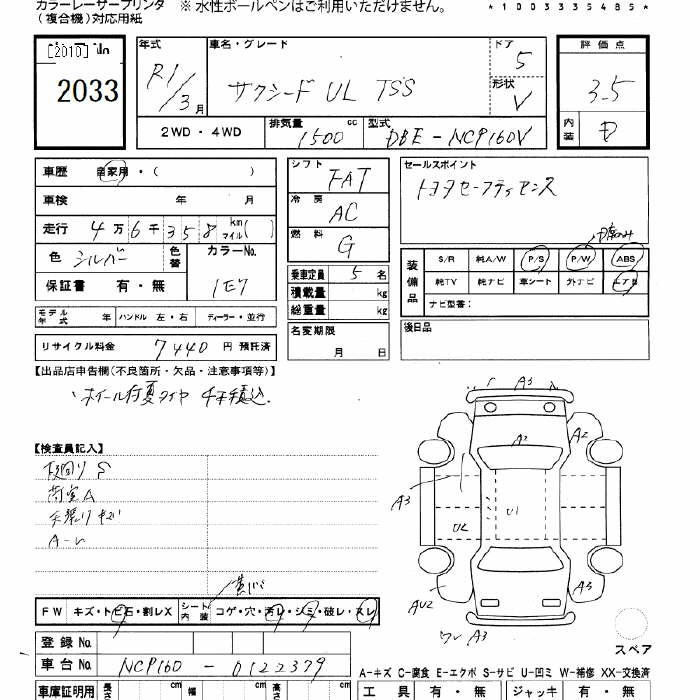 カラーレーザープリンタ ※ 水性ボールペンはご利用いただけません。
(複合機)対応用紙
*1003335485*
[2010]
2033
年式 車名・グレード ドア 評価点
R1/3月 サクシード UL TSS 5 3.5
形状 V
2WD・4WD 排気量 1500 cc 型式 DBE-NCP160V 内装 D
車歴 自家用・( )
車検 年 月
走行 4万6千358 km マイル( )
色 シルバー 色替 カラーNo. 1E7
保証書 有・無
シフト FAT
冷房 AC
燃料 G
乗車定員 5名
積載量 kg
総重量 kg
名変期限
月 日
セールスポイント
トヨタセーフティセンス
装備品 S/R 純A/W P/S P/W ABS
純TV 純ナビ 革シート 外ナビ エアB
ナビ型番:
後日品
モデル年式 ハンドル 左・右 ディーラー・並行
リサイクル料金 7440円 預託済
【出品店申告欄(不良箇所・欠品・注意事項等)】
ホイール付夏タイヤ 4本積込
【検査員記入】
荷室A
A3
A2
A2
A3
U2
U1
AU2
A3
ワレ A3
スペア
FW キズ・トビ石・割レX シート内装 コゲ・穴・汚レ・シミ・破レ・スレ
登録No.
車台No. NCP160-0122379
A-キズ C-腐食 E-エクボ S-サビ U-凹ミ W-補修 XX-交換済
車庫証明用 長さ cm 幅 cm 高さ cm 工具 有・無 ジャッキ 有・無